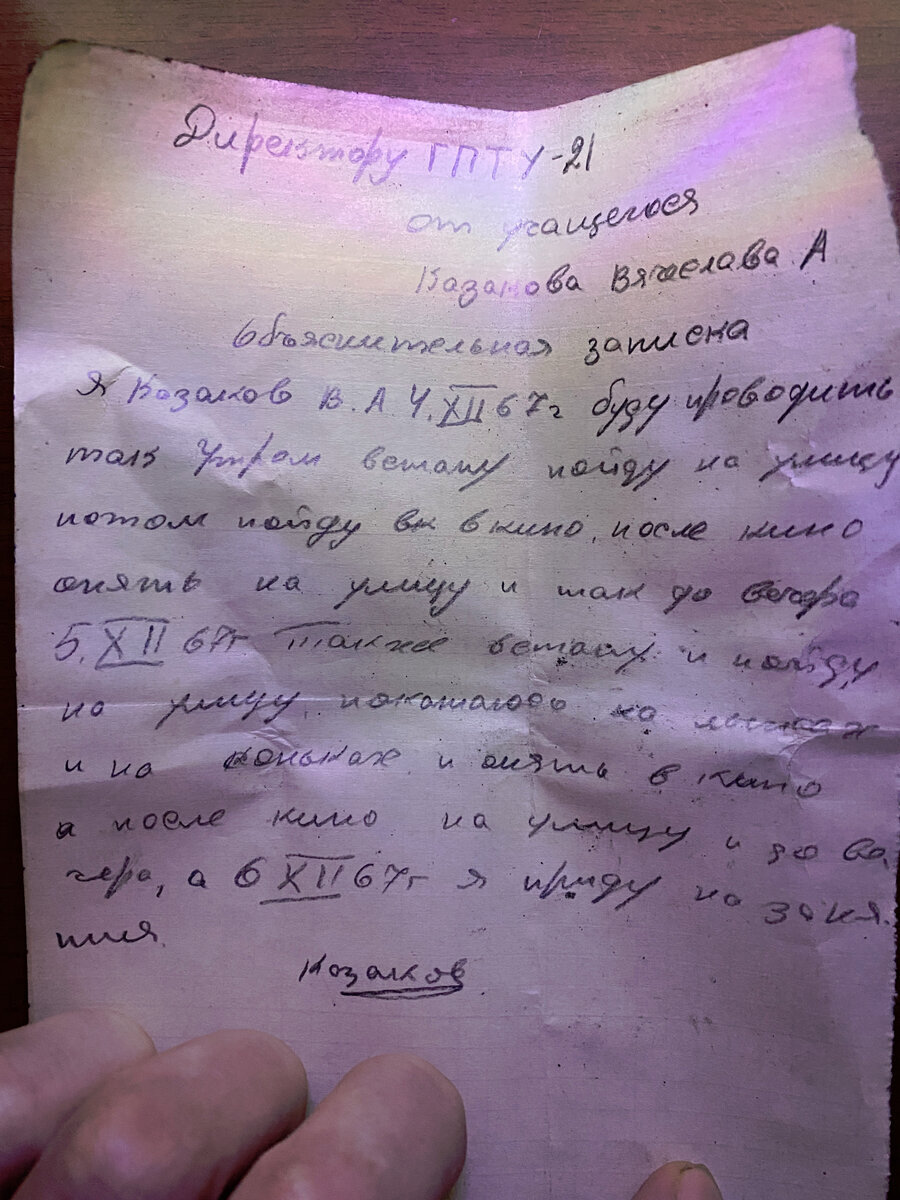 Директору ГПТУ-21
от учащегося
Казакова Вячеслава А
Объяснительная записка
Я Казаков В.А 4.XII 67г буду проводить
так Утром встану пойду на улицу
потом пойду вк в кино, после кино
опять на улицу и так до вечера
5.XII 67г также встану и пойду
на улицу, покатаюсь на лыжах
и на коньках и опять в кино
а после кино на улицу и до ве
чера, а 6 XII 67г я приду на заня
тия.
Казаков